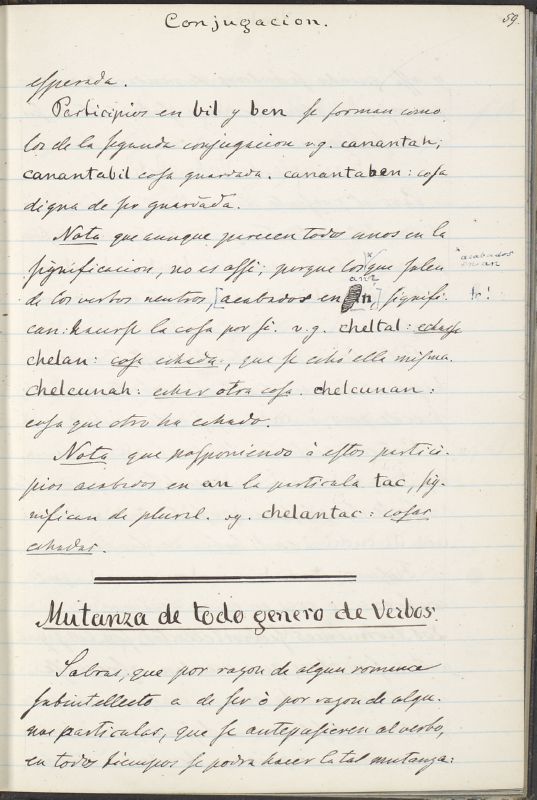 Conjugacion.
59.
esperada.
Participios en bil y ben se forman como
los de la segunda conjugacion v.g. canantah;
canantabil cosa guardada. canantaben: cosa
digna de ser guardada.
Nota que aunque parecen todos unos en la
significacion, no es assi; porque los que salen
* acabados
en an
de los verbos neutros, [acabados en n,] signifi-
can: hacerse la cosa por si. v.g. cheltal: echasse
chelan: cosa echada, que se echó ella misma.
chelcunah: echar otra cosa. chelcunan:
cosa que otro ha echado.
Nota que posponiendo à estos partici-
pios acabados en an la particula tac, sig-
nifican de plural. vg. chelantac: cosas
echadas.
Mutanza de todo genero de Verbos.
Sabras, que por razon de algun romance
subintellecto a de ser ò por razon de algu-
nas particulas, que se antepusieren al verbo,
en todos tiempos se podra hacer la tal mutanza: